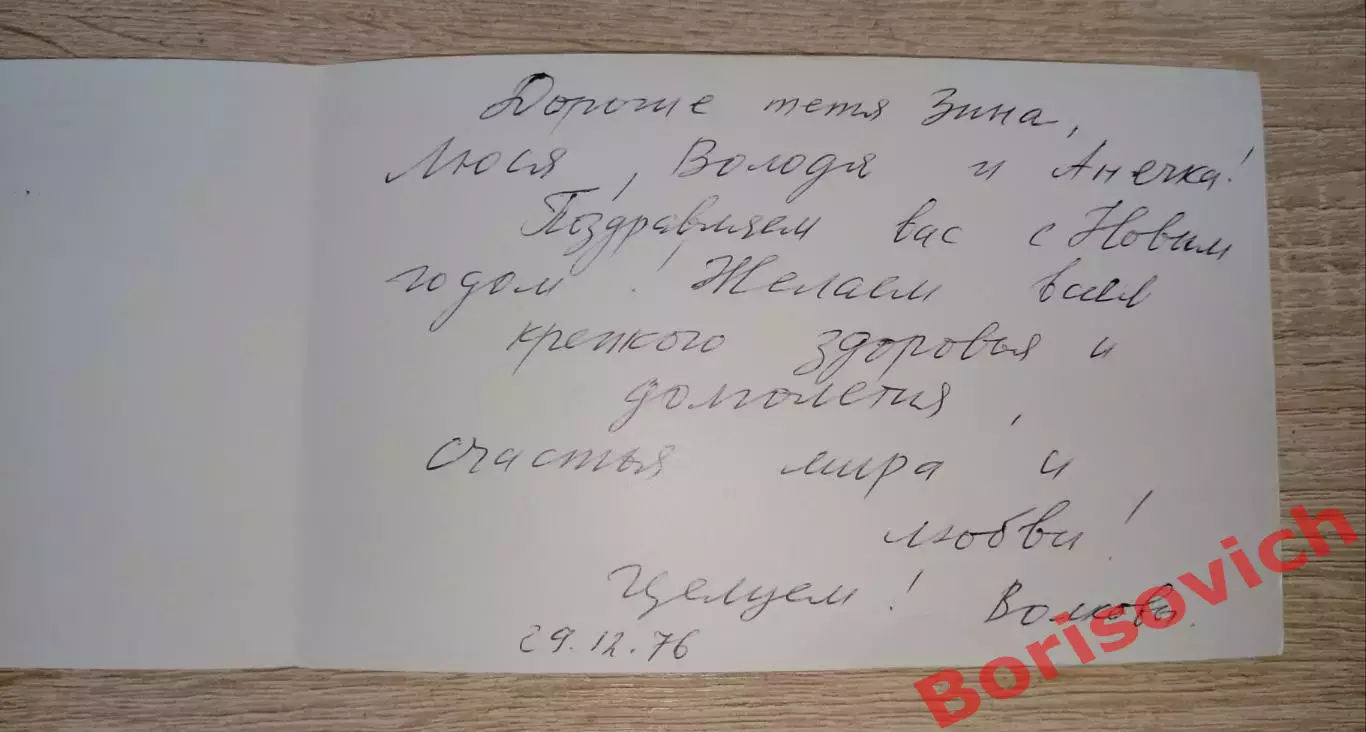 Дорогие тетя Зина,
Люся, Володя и Анечка!
Поздравляем вас с Новым
годом! Желаем всем
крепкого здоровья и
долголетия,
счастья мира и
любви!
Целуем! Волковы.
29.12.76
Borisovich